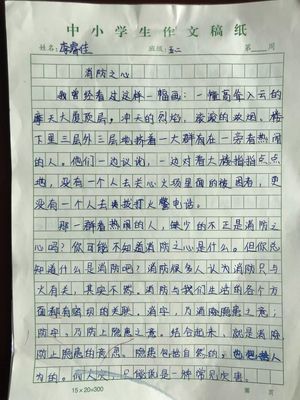 中小学生作文稿纸
姓名: 班级: 五二 第 周
消防之心
我曾经看过这样一幅画：一幢高耸入云的
摩天大厦顶层，冲天的烈焰，滚滚的浓烟，楼
下里三层外三层地挤着一大群看在一旁看热闹
的人。他们一边议论，一边对着大楼指指点点
地，没有一个人去关心火场里面的被困者，更
没有一个人去拨打火警电话。
那一群看热闹的人，缺少的不正是消防之
心吗？你可能不知道消防之心是什么。但你总
知道什么是消防吧？消防很多人认为消防只与
火有关，其实不然。消防与我们生活的各个方
面都有密切的关联。消字，乃消除隐患之意；
防字，乃防止隐患之意。结合起来，就是消除，
防止隐患的意思。隐患包括自然的，也包括人
为的。而火灾，只能说是一种常见灾害。
15×20=300